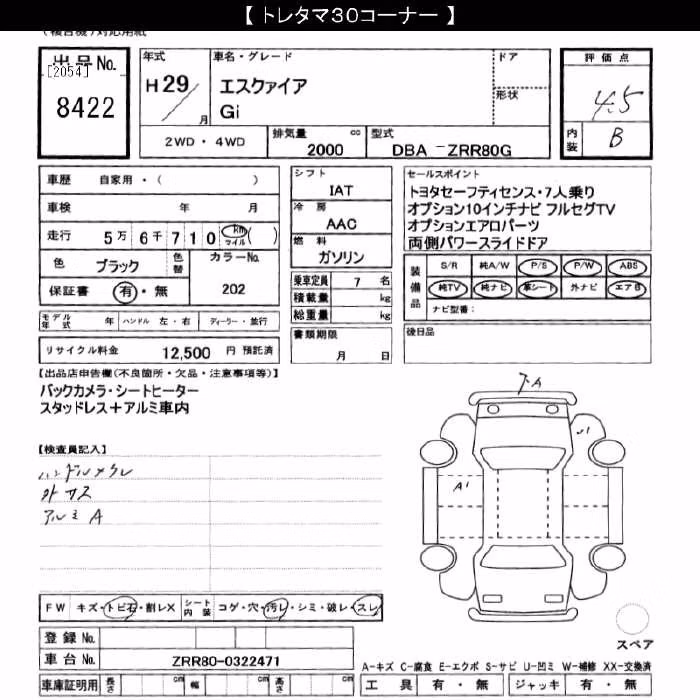 【 トレタマ30コーナー 】
(複合機)対応用紙
出品No.
[2054]
8422
年式
H29/ 月
車名・グレード
エスクァイア
Gi
ドア
形状
2WD ・ 4WD
排気量 cc
2000
型式
DBA -ZRR80G
評価点
4.5
内装
B
車歴 自家用・( )
車検 年 月
走行 5万 6千 7 1 0 km マイル ( )
色 ブラック 色替
カラーNo.
202
保証書 有・無
モデル年式 年 ハンドル 左・右 ディーラー・並行
リサイクル料金 12,500 円 預託済
シフト
IAT
冷房
AAC
燃料
ガソリン
乗車定員 7 名
積載量 kg
総重量 kg
書類期限
月 日
セールスポイント
トヨタセーフティセンス・7人乗り
オプション10インチナビ フルセグTV
オプションエアロパーツ
両側パワースライドドア
装備品
S/R 純A/W P/S P/W ABS
純TV 純ナビ 革シート 外ナビ エアB
ナビ型番:
後日品
【出品店申告欄(不良箇所・欠品・注意事項等)】
バックカメラ・シートヒーター
スタッドレス+アルミ車内
【検査員記入】
ハンドルメクレ
外 キス
アルミ A
A
A1
FW キズ・トビ石・割レX シート内装 コゲ・穴・汚レ・シミ・破レ・スレ
登録No.
車台No. ZRR80-0322471
車庫証明用 長さ cm 幅 cm 高さ cm
スペア
A-キズ C-腐食 E-エクボ S-サビ U-凹ミ W-補修 XX-交換済
工具 有・無 ジャッキ 有・無